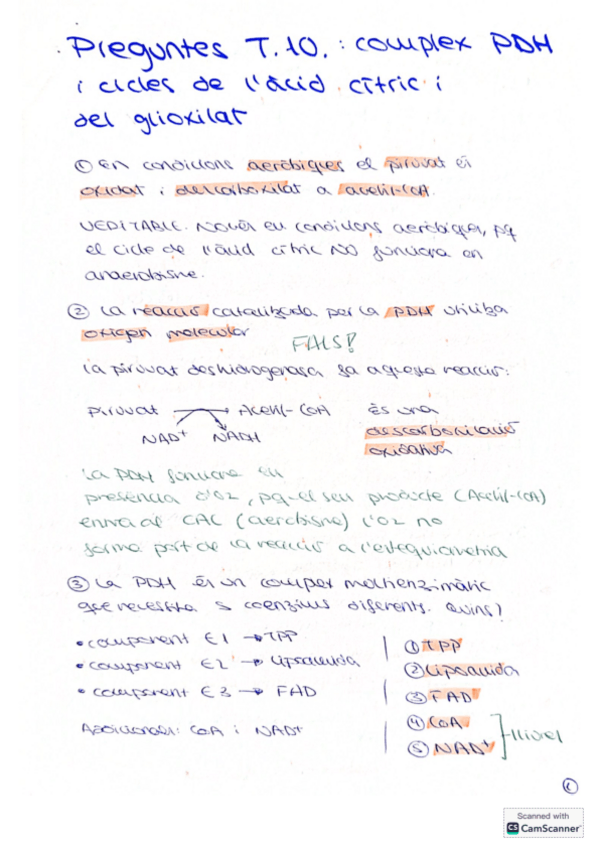 Preguntes T.10.: complex PDH
i cicles de l'àcid cítric i
del glioxilat
① En condicions aeròbiques el piruvat és
oxidat i descarboxilat a acetil-CoA.
VERITABLE. Només en condicions aeròbiques, pq
el cicle de l'àcid cítric NO funciona en
anaerobisme.
② La reacció catalitzada per la PDH utilitza
oxigen molecular
FALS!
La piruvat deshidrogenasa fa aquesta reacció:
piruvat → Acetil-CoA És una
NAD+ NADH descarboxilació
oxidativa
La PDH funciona en
presència d'O2, pq el seu producte (Acetil-CoA)
entra al CAC (aerobisme) L'O2 no
forma part de la reacció a l'estequiometria
③ La PDH és un complex multienzimàtic
que necessita 5 coenzims diferents. Quins?
• component E1 → TPP
• component E2 → Lipoamida
• component E3 → FAD
Addicionals: CoA i NAD+
① TPP
② Lipoamida
③ FAD
④ CoA
⑤ NAD+
lliures
①
Scanned with
CS CamScanner